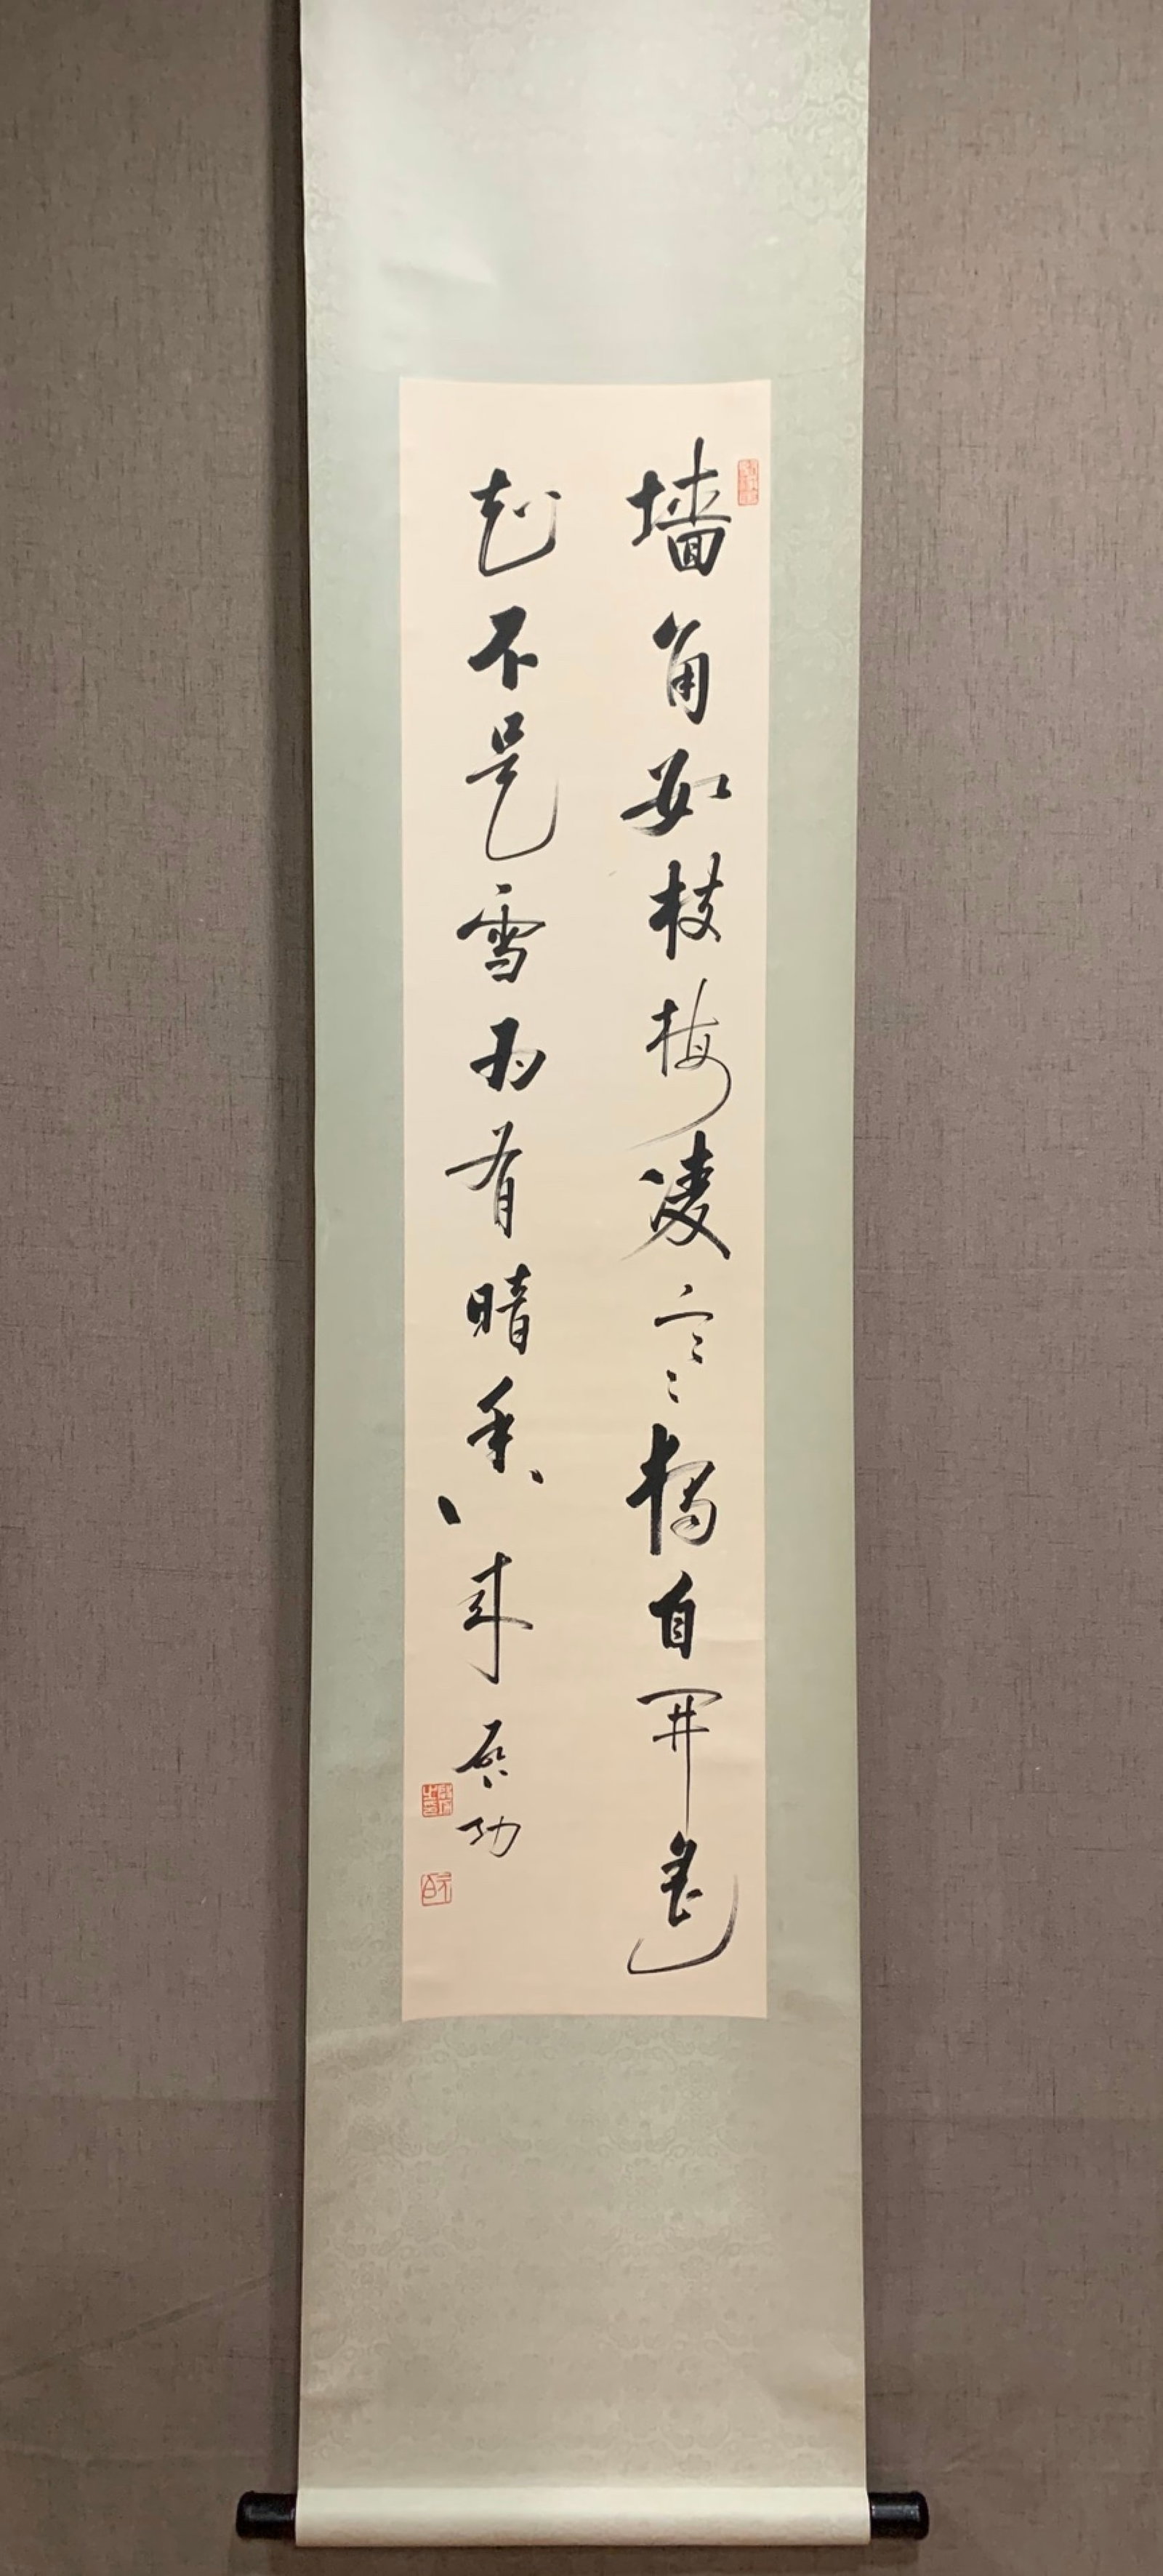 墙角数枝梅凌寒独自开遥
知不是雪为有暗香来
启功
元白